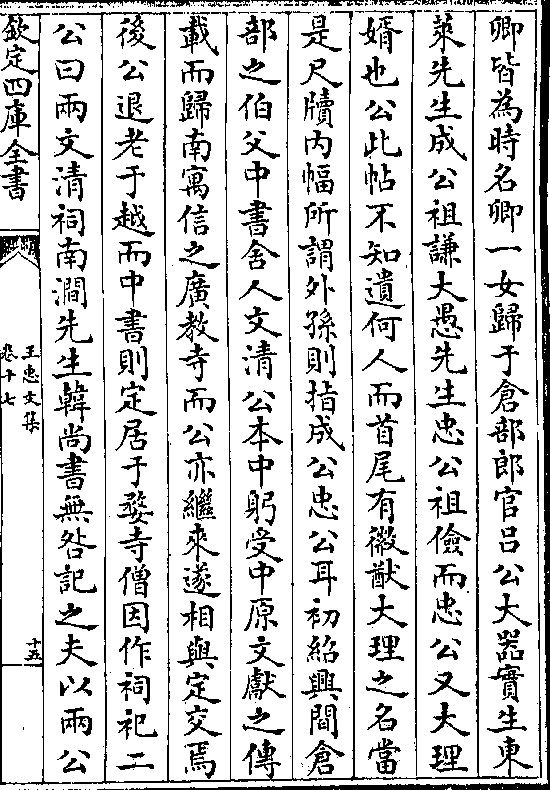 卿皆為時名卿一女歸于倉部郎官吕公大器實生東
萊先生成公祖謙大愚先生忠公祖儉而忠公又大理
婿也公此帖不知遺何人而首尾有徽猷大理之名當
是尺牘内幅所謂外孫則指成公忠公耳初紹興間倉
部之伯父中書舍人文清公本中躬受中原文獻之傳
載而歸南寓信之廣教寺而公亦繼來遂相與定交焉
後公退老于越而中書則定居于婺寺僧因作祠祀二
公曰兩文清祠南澗先生韓尚書無咎記之夫以兩公
欽定四庫全書
王忠文集
卷十七
十五